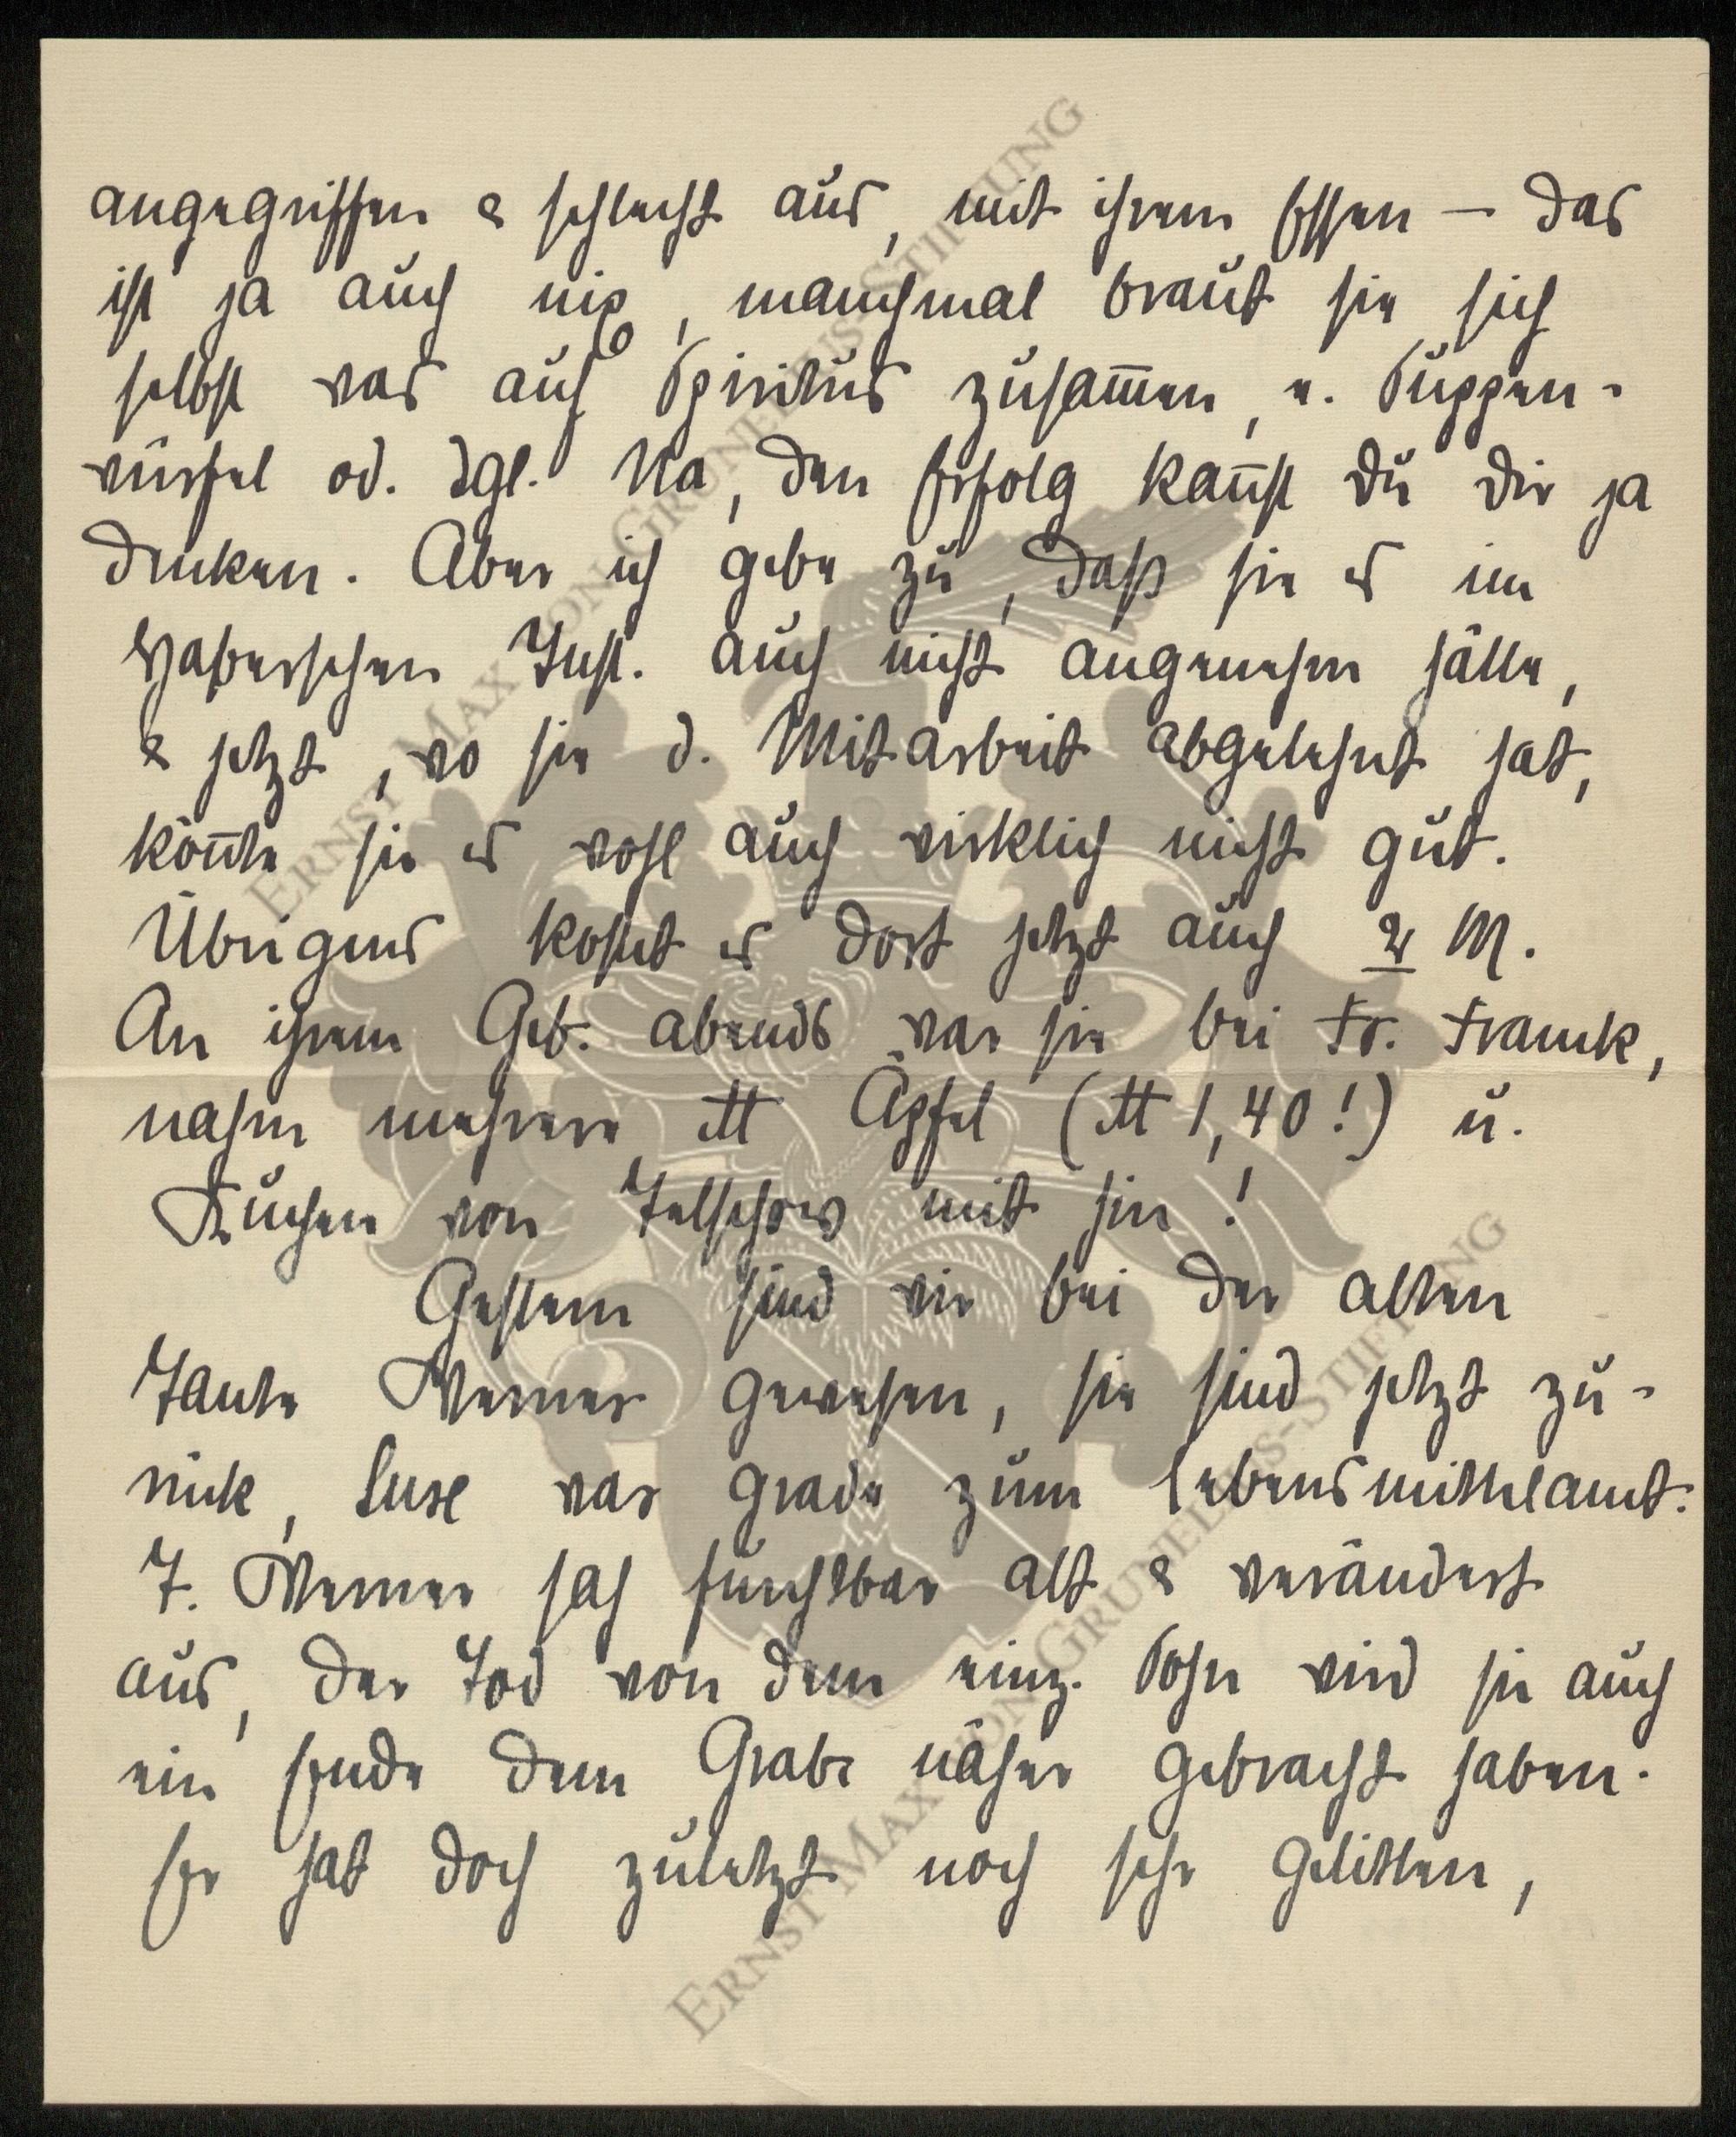 angegriffen & schlecht aus, mit ihrem Essen — das
ist ja auch nix, manchmal braut sie sich
selbst was auf Spiritus zusammen, e. Suppen-
würfel od. dgl. Na, den Erfolg kannst Du Dir ja
denken. Aber ich gebe zu, daß sie es im
Haberschen Inst. auch nicht angenehm hätte,
& jetzt, wo sie d. Mitarbeit abgelehnt hat,
könnte sie es wohl auch wirklich nicht gut.
Übrigens kostet es dort jetzt auch 2 M.
An ihrem Geb. abends war sie bei Fr. Franck,
nahm mehrere ℔ Äpfel (℔ 1,40!) u.
Kuchen von Telschow mit hin!
Gestern sind wir bei der alten
Tante Werner gewesen, sie sind jetzt zu-
rück, war grade zum Lebensmittelamt.
T. Werner sah furchtbar alt & verändert
aus, der Tod von dem einz. Sohn wird sie auch
ein Ende dem Grabe näher gebracht haben.
Er hat doch zuletzt noch sehr gelitten,
ERNST MAX VON GRUNELIUS-STIFTUNG
ERNST MAX VON GRUNELIUS-STIFTUNG